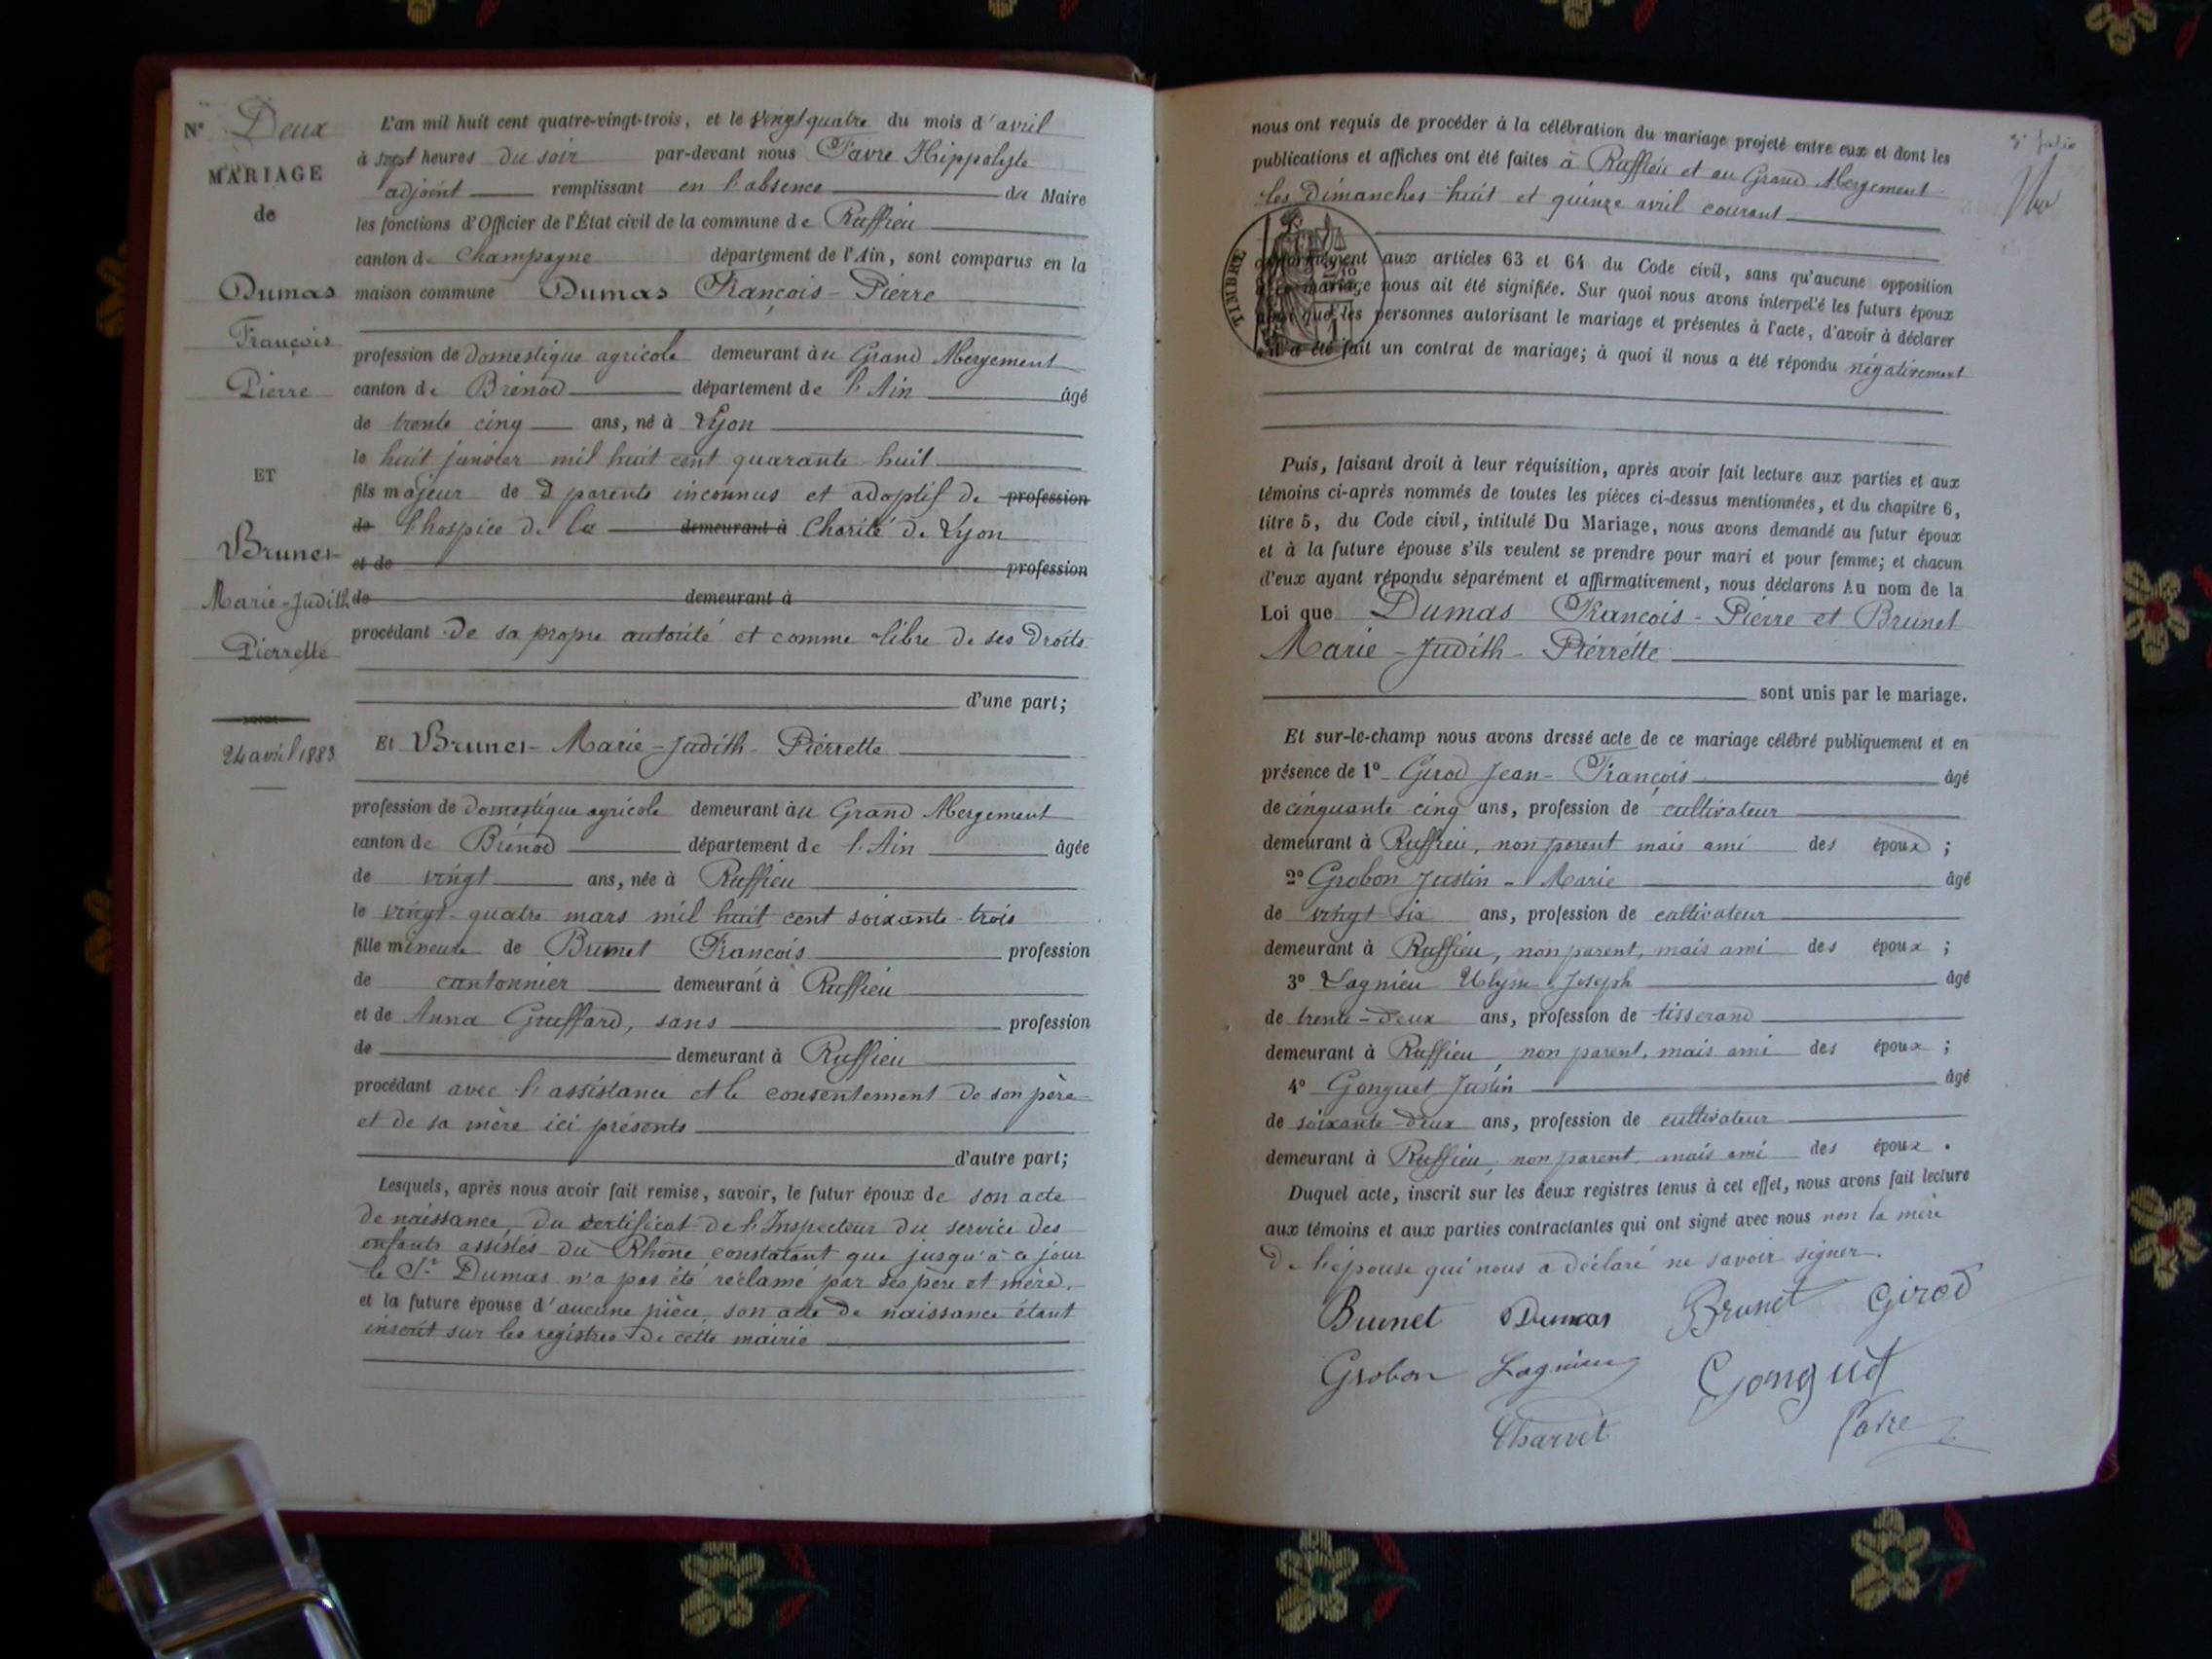 N° Deux
MARIAGE
de
Dumas
François
Pierre
ET
Brunet
Marie-Judith
Pierrette
24 avril 1883
L'an mil huit cent quatre-vingt-trois, et le vingt quatre du mois d'avril
à sept heures du soir par-devant nous Favre Hippolyte
adjoint remplissant en l'absence du Maire
les fonctions d'Officier de l'État civil de la commune de Ruffieu
canton de Champagne département de l'Ain, sont comparus en la
maison commune Dumas François-Pierre
profession de domestique agricole demeurant au Grand Abergement
canton de Brénod département de l'Ain âgé
de trente cinq ans, né à Lyon
le huit janvier mil huit cent quarante-huit
fils majeur de parents inconnus et adoptif de profession
de l'hospice de la demeurant à Charité de Lyon
et de profession
de demeurant à
procédant de sa propre autorité et comme libre de ses droits
d'une part;
Et Brunet Marie-Judith-Pierrette
profession de domestique agricole demeurant au Grand Abergement
canton de Brénod département de l'Ain âgée
de vingt ans, née à Ruffieu
le vingt-quatre mars mil huit cent soixante-trois
fille mineure de Brunet François profession
de cantonnier demeurant à Ruffieu
et de Anna Gruffard, sans profession
de demeurant à Ruffieu
procédant avec l'assistance et le consentement de son père
et de sa mère ici présents
d'autre part;
Lesquels, après nous avoir fait remise, savoir, le futur époux de son acte
de naissance, du certificat de l'Inspecteur du service des
enfants assistés du Rhône constatant que jusqu'à ce jour
le Sr Dumas n'a pas été réclamé par ses père et mère,
et la future épouse d'aucune pièce, son acte de naissance étant
inscrit sur les registres de cette mairie
nous ont requis de procéder à la célébration du mariage projeté entre eux et dont les
publications et affiches ont été faites à Ruffieu et au Grand Abergement
les dimanches huit et quinze avril courant
TIMBRE
conformément aux articles 63 et 64 du Code civil, sans qu'aucune opposition
mariage nous ait été signifiée. Sur quoi nous avons interpelé les futurs époux
que les personnes autorisant le mariage et présentes à l'acte, d'avoir à déclarer
s'il a été fait un contrat de mariage; à quoi il nous a été répondu négativement
Puis, faisant droit à leur réquisition, après avoir fait lecture aux parties et aux
témoins ci-après nommés de toutes les pièces ci-dessus mentionnées, et du chapitre 6,
titre 5, du Code civil, intitulé Du Mariage, nous avons demandé au futur époux
et à la future épouse s'ils veulent se prendre pour mari et pour femme; et chacun
d'eux ayant répondu séparément et affirmativement, nous déclarons Au nom de la
Loi que Dumas François-Pierre et Brunet
Marie-Judith-Pierrette
sont unis par le mariage.
Et sur-le-champ nous avons dressé acte de ce mariage célébré publiquement et en
présence de 1° Girod Jean-François âgé
de cinquante cinq ans, profession de cultivateur
demeurant à Ruffieu, non parent mais ami des époux ;
2° Grobon Justin-Marie âgé
de vingt six ans, profession de cultivateur
demeurant à Ruffieu, non parent, mais ami des époux ;
3° Lagnieu Ulysse Joseph âgé
de trente-deux ans, profession de tisserand
demeurant à Ruffieu, non parent, mais ami des époux ;
4° Gonguet Justin âgé
de soixante-deux ans, profession de cultivateur
demeurant à Ruffieu, non parent, mais ami des époux .
Duquel acte, inscrit sur les deux registres tenus à cet effet, nous avons fait lecture
aux témoins et aux parties contractantes qui ont signé avec nous non la mère
de l'épouse qui nous a déclaré ne savoir signer.
Brunet Dumas Brunet Girod
Grobon Lagnieu Gonguet
Charvet Favre